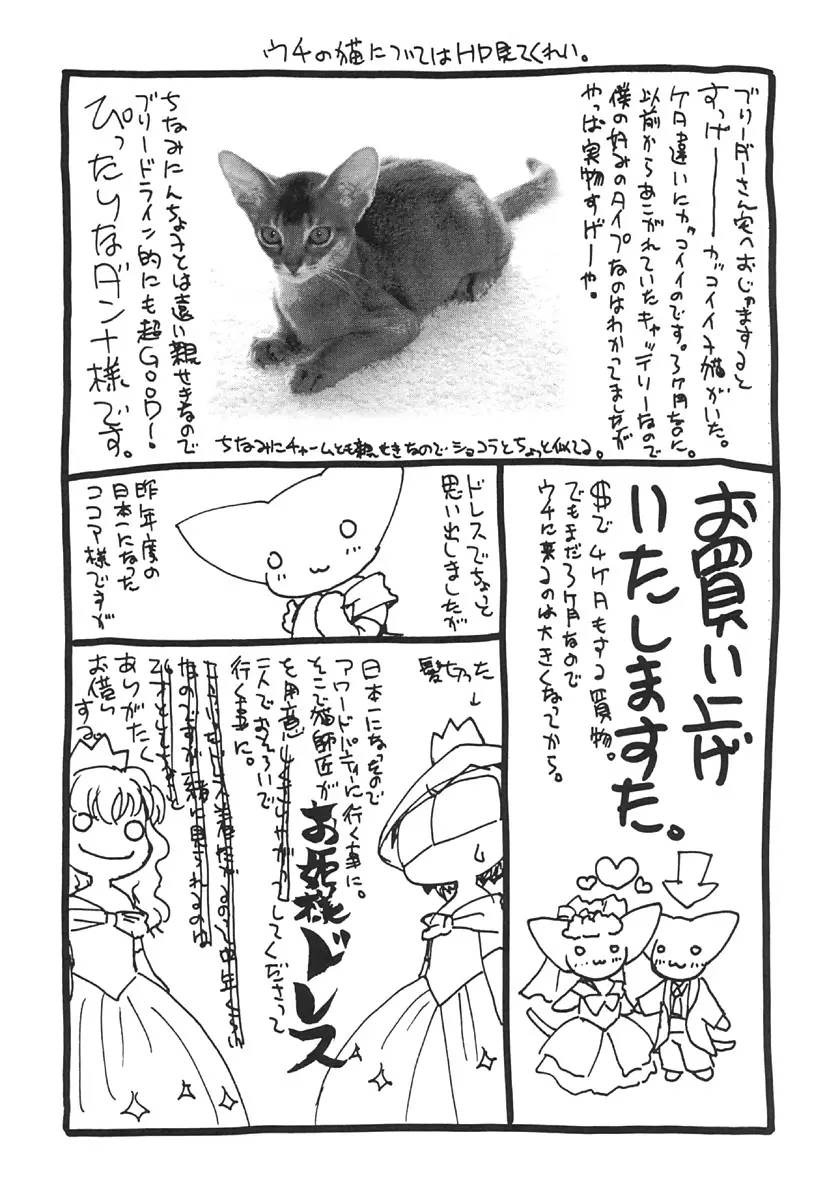 ウチの猫についてはHP見てくれい。
ブリーダーさん宅へおじゃますると
すっげーーーガッコイイ子猫がいた。
ケタ違いにガッコイイのです。3ヶ月なのに。
以前からあこがれていたキャッテリーなので
僕の好みのタイプなのはわかってましたが
やっぱ実物すげーや。
ちなみにんちょ子とは遠い親せきなので
ブリードライン的にも超GOOD!
ぴったりなダンナ様です。
ちなみにチャームとも親せきなのでショコラとちょっと似てる。
お買い上げ
いたしますた。
$で4ケタもする買物。
でもまだ3ヶ月なので
ウチに来るのは大きくなってから。
ドレスでちょっと
思い出しましたが
昨年度の
日本一になった
ココア様ですが
髪切った
日本一になったので
アワードパーティーに行く事に。
そこで猫師匠が
お姫様ドレス
を用意しくさりやがってしてくださって
二人でおそろいで
行く事に。
ありがたく
お借りする。